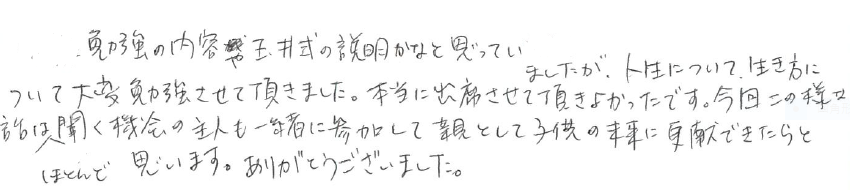 勉強の内容や玉井式の説明かなと思ってい
ましたが、人生について、生き方に
ついて大変勉強させて頂きました。本当に出席させて頂きよかったです。今回この様な
話は聞く機会の主人も一緒に参加して親として子供の未来に貢献できたらと
ほとんど 思います。ありがとうございました。